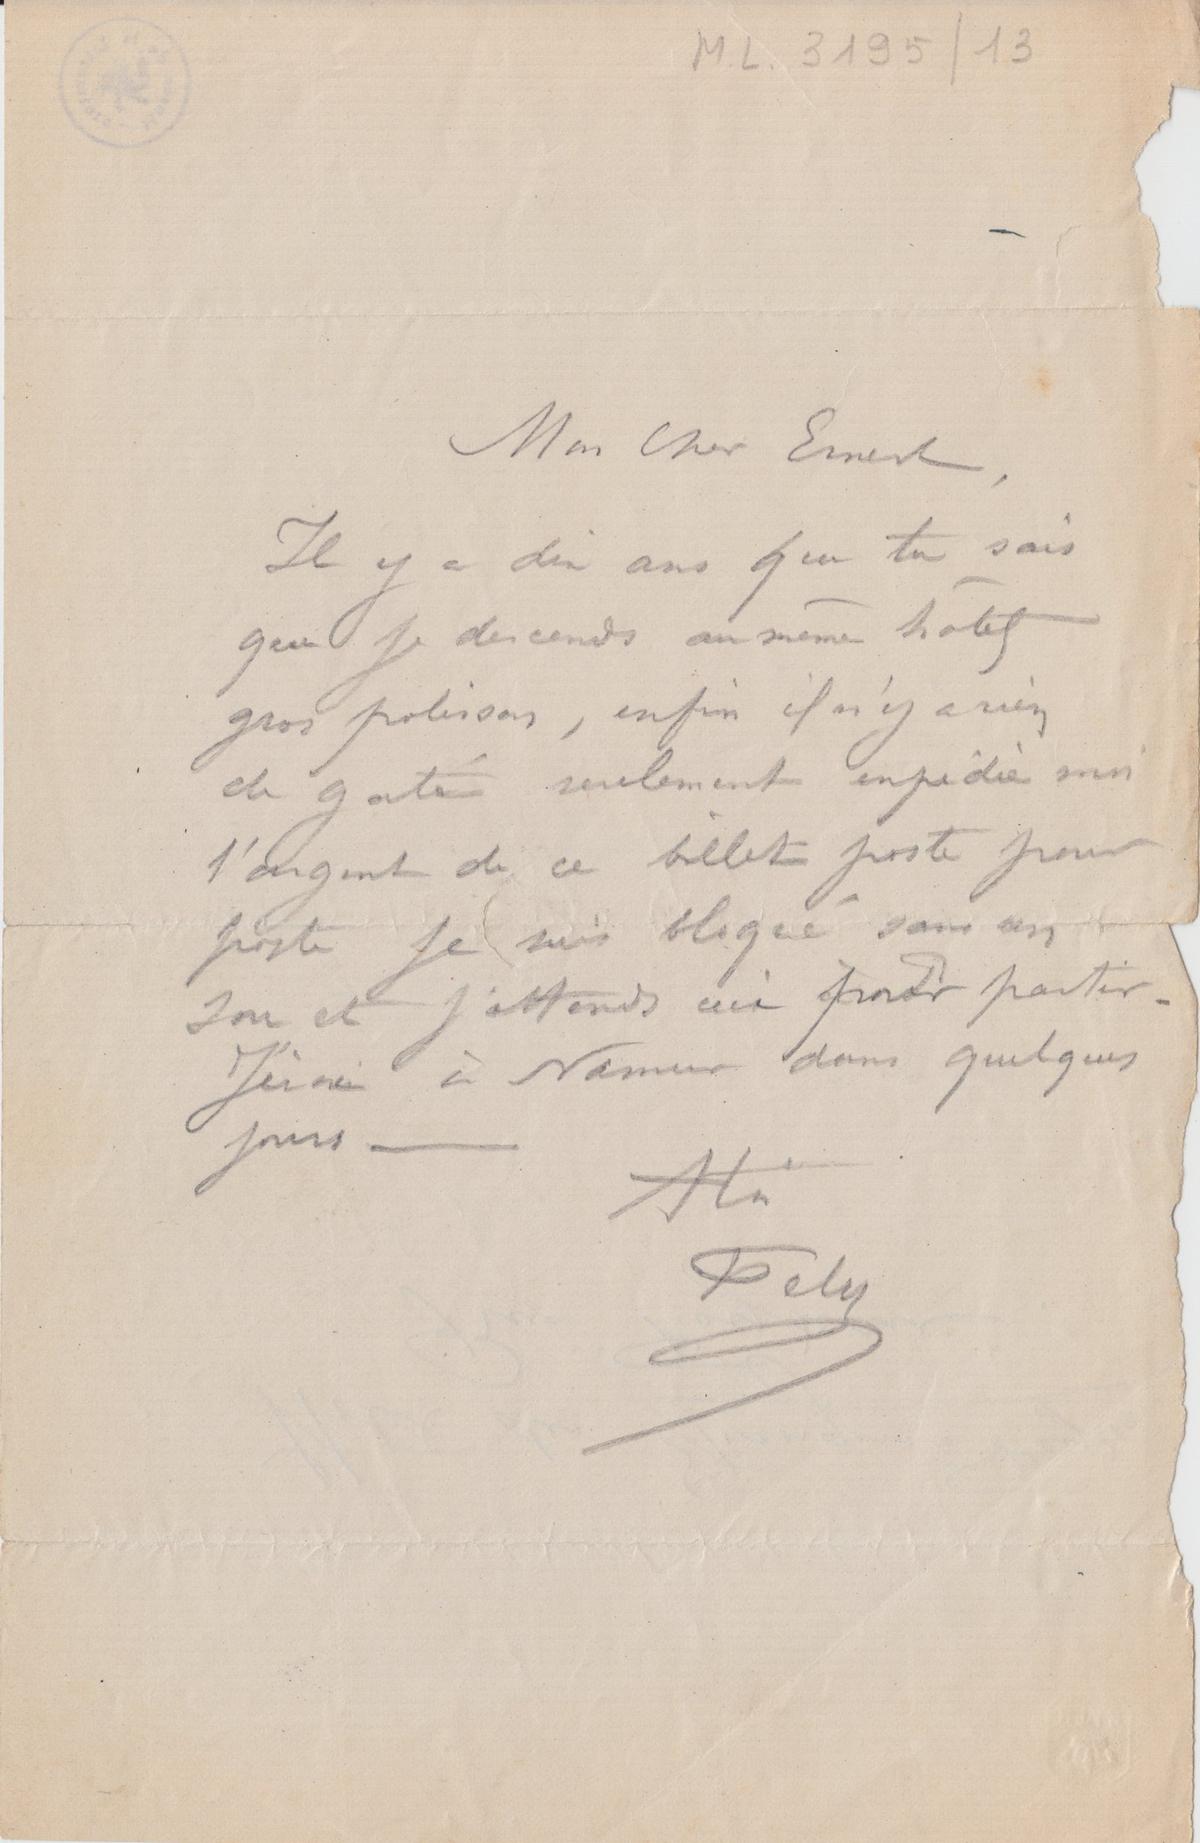 M.L. 3195/13
Mon Cher Ernest,
Il y a dix ans que tu sais
que je descends au même hôtel
gros polisson, enfin il n'y a rien
de gaté seulement expédie moi
l'argent de ce billet poste pour
poste je suis bloqué sans un
sou et j'attends cela pour partir -
J'irai à Namur dans quelques
jours
À tà
Fély